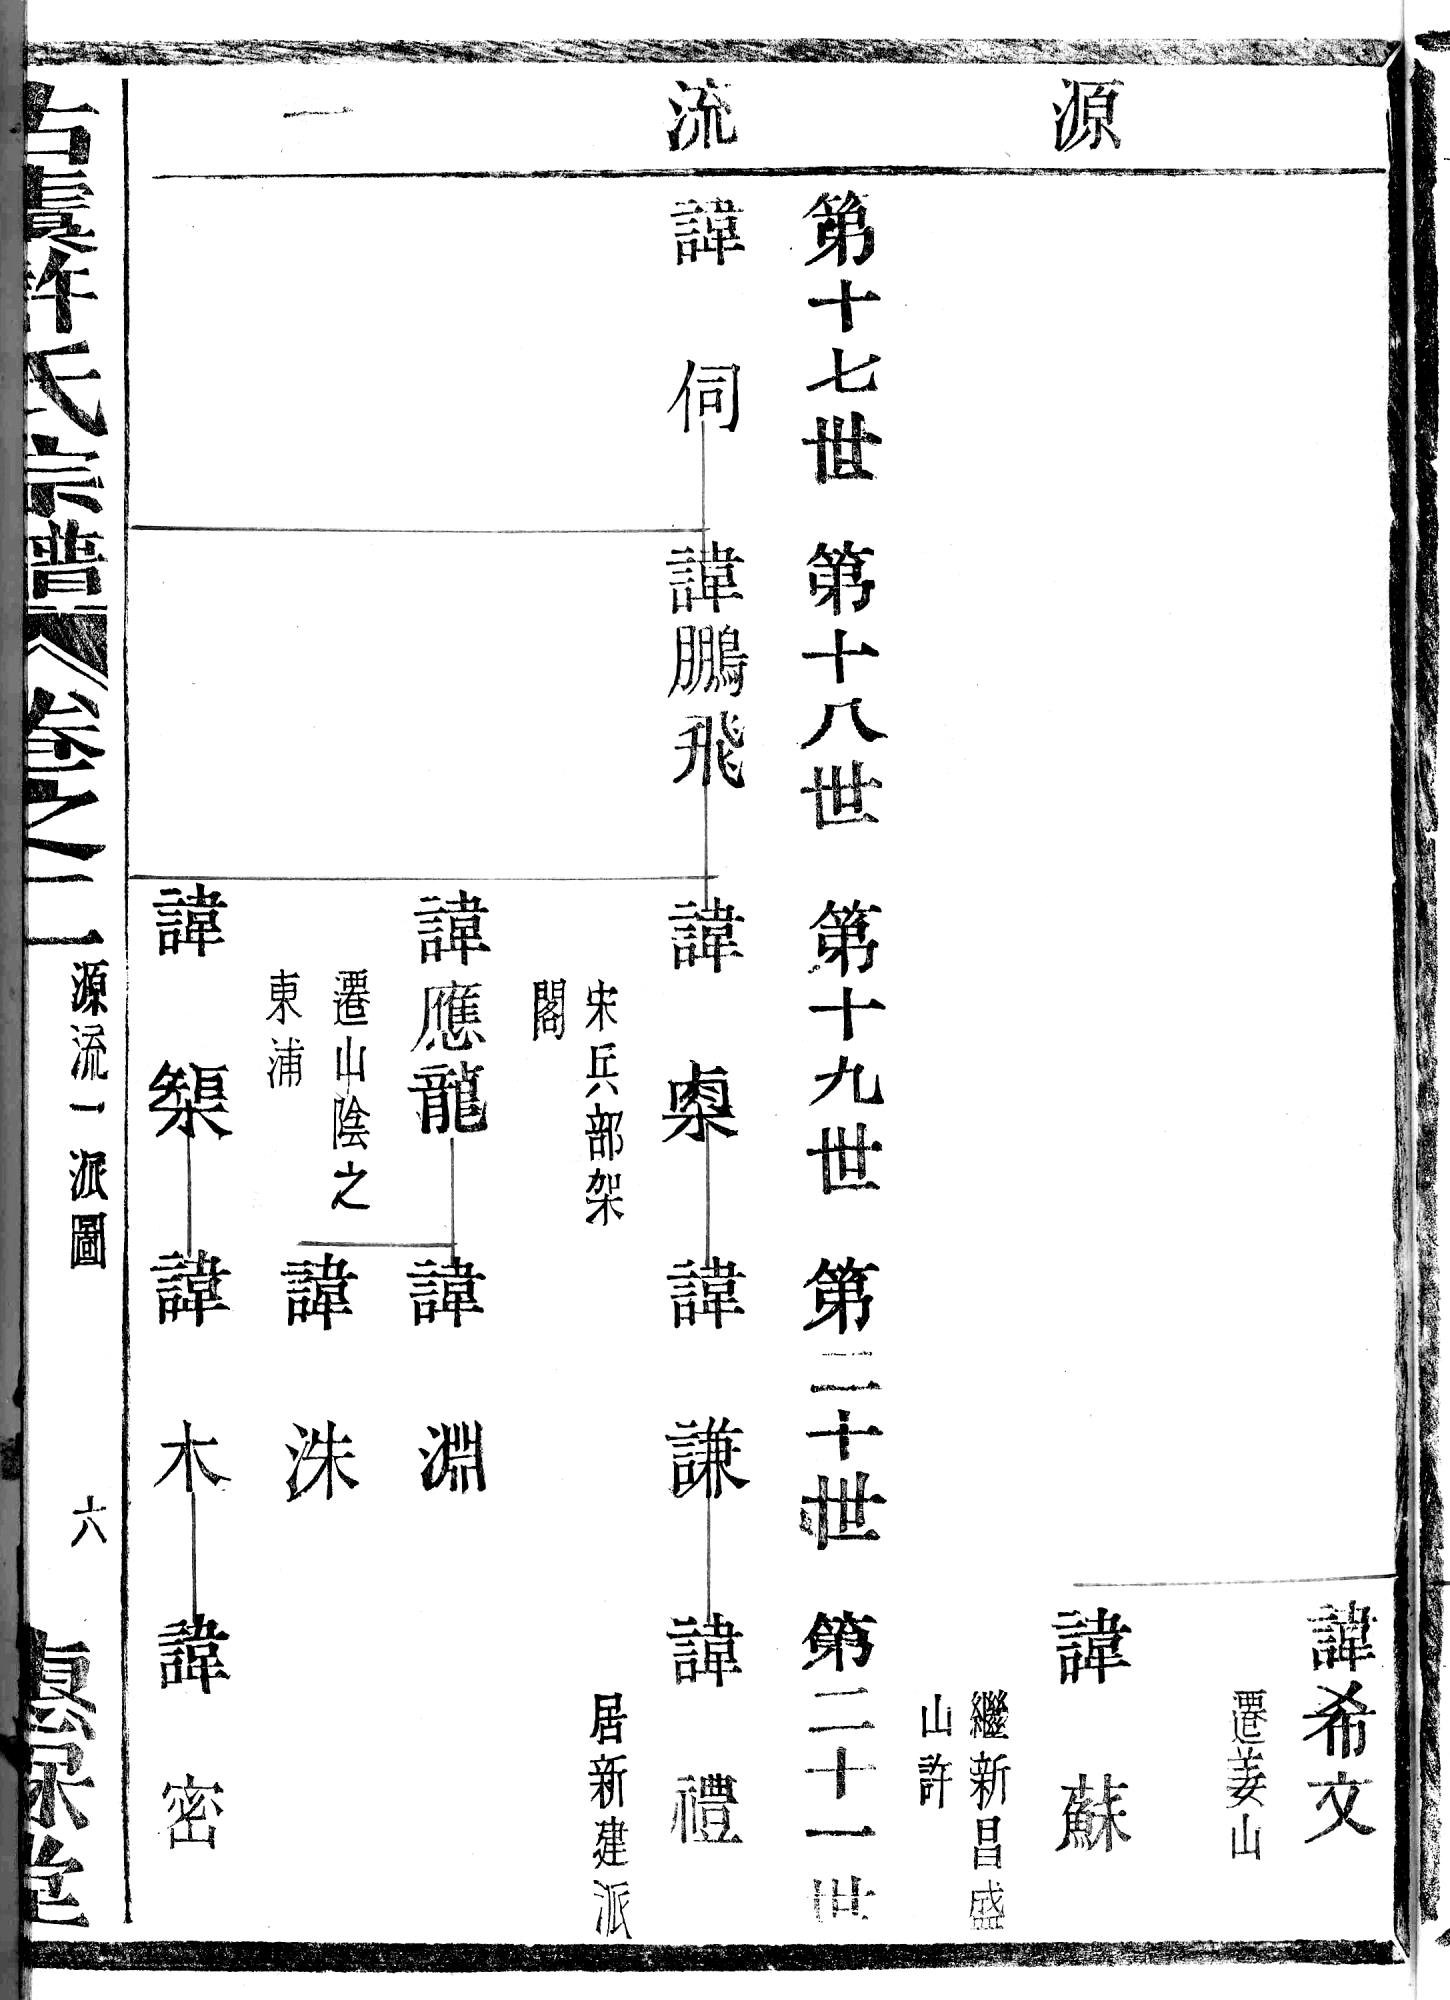 源流一
諱希文
遷姜山
諱蘇
繼新昌盛
山許
第十七世 第十八世 第十九世 第二十世 第二十一世
諱伺 諱鵬飛 諱㮚 諱謙 諱禮
宋兵部架
閣
居新建派
諱應龍 諱淵
遷山陰之
東浦
諱洙
諱榘 諱木 諱密
古虞許氏宗譜 卷之二 源流一派圖 六